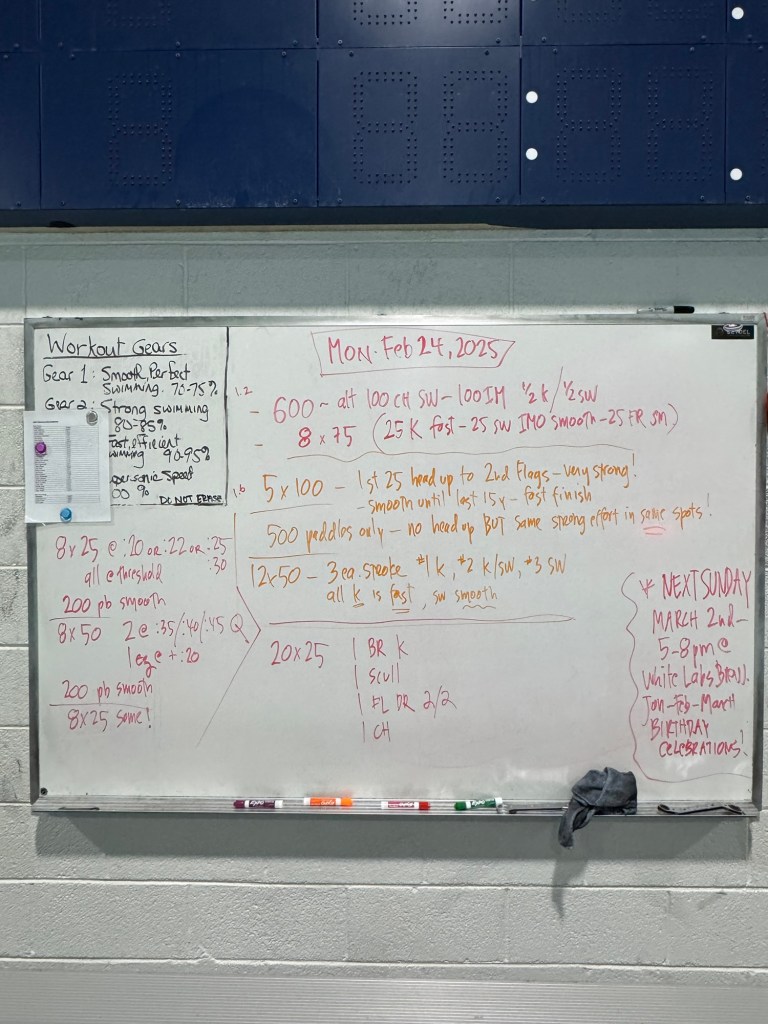 Workout Gears
Gear 1: Smooth, Perfect
swimming. 70-75%
Gear 2: Strong swimming
80-85%
Fast, efficient
swimming 90-95%
personic Speed
00 %
DO NOT ERASE
MON. Feb 24, 2025
1.2
- 600 ~ alt 100 CH SW - 100 IM 1/2 K / 1/2 SW
- 8 x 75 (25 K fast - 25 SW IMO smooth - 25 FR sm)
1.6
5 x 100 - 1st 25 head up to 2nd Flags - very strong!
- smooth until last 15y - fast finish
500 paddles only - no head up BUT same strong effort in same spots!
12x50 - 3 ea. stroke #1 K, #2 K/SW, #3 SW
all K is fast, SW smooth
20x25 1 BR K
1 scull
1 FL DR 2/2
1 CH
8x25 @ :20 OR :22 OR :25
:30
all @ threshold
200 pb smooth
8x50 2 @ :35/:40/:45 Q
1 ez @ + :20
200 pb smooth
8x25 same!
* NEXT SUNDAY
MARCH 2nd -
5-8pm @
White Labs Brew.
Jan-Feb-March
BIRTHDAY
CELEBRATIONS!